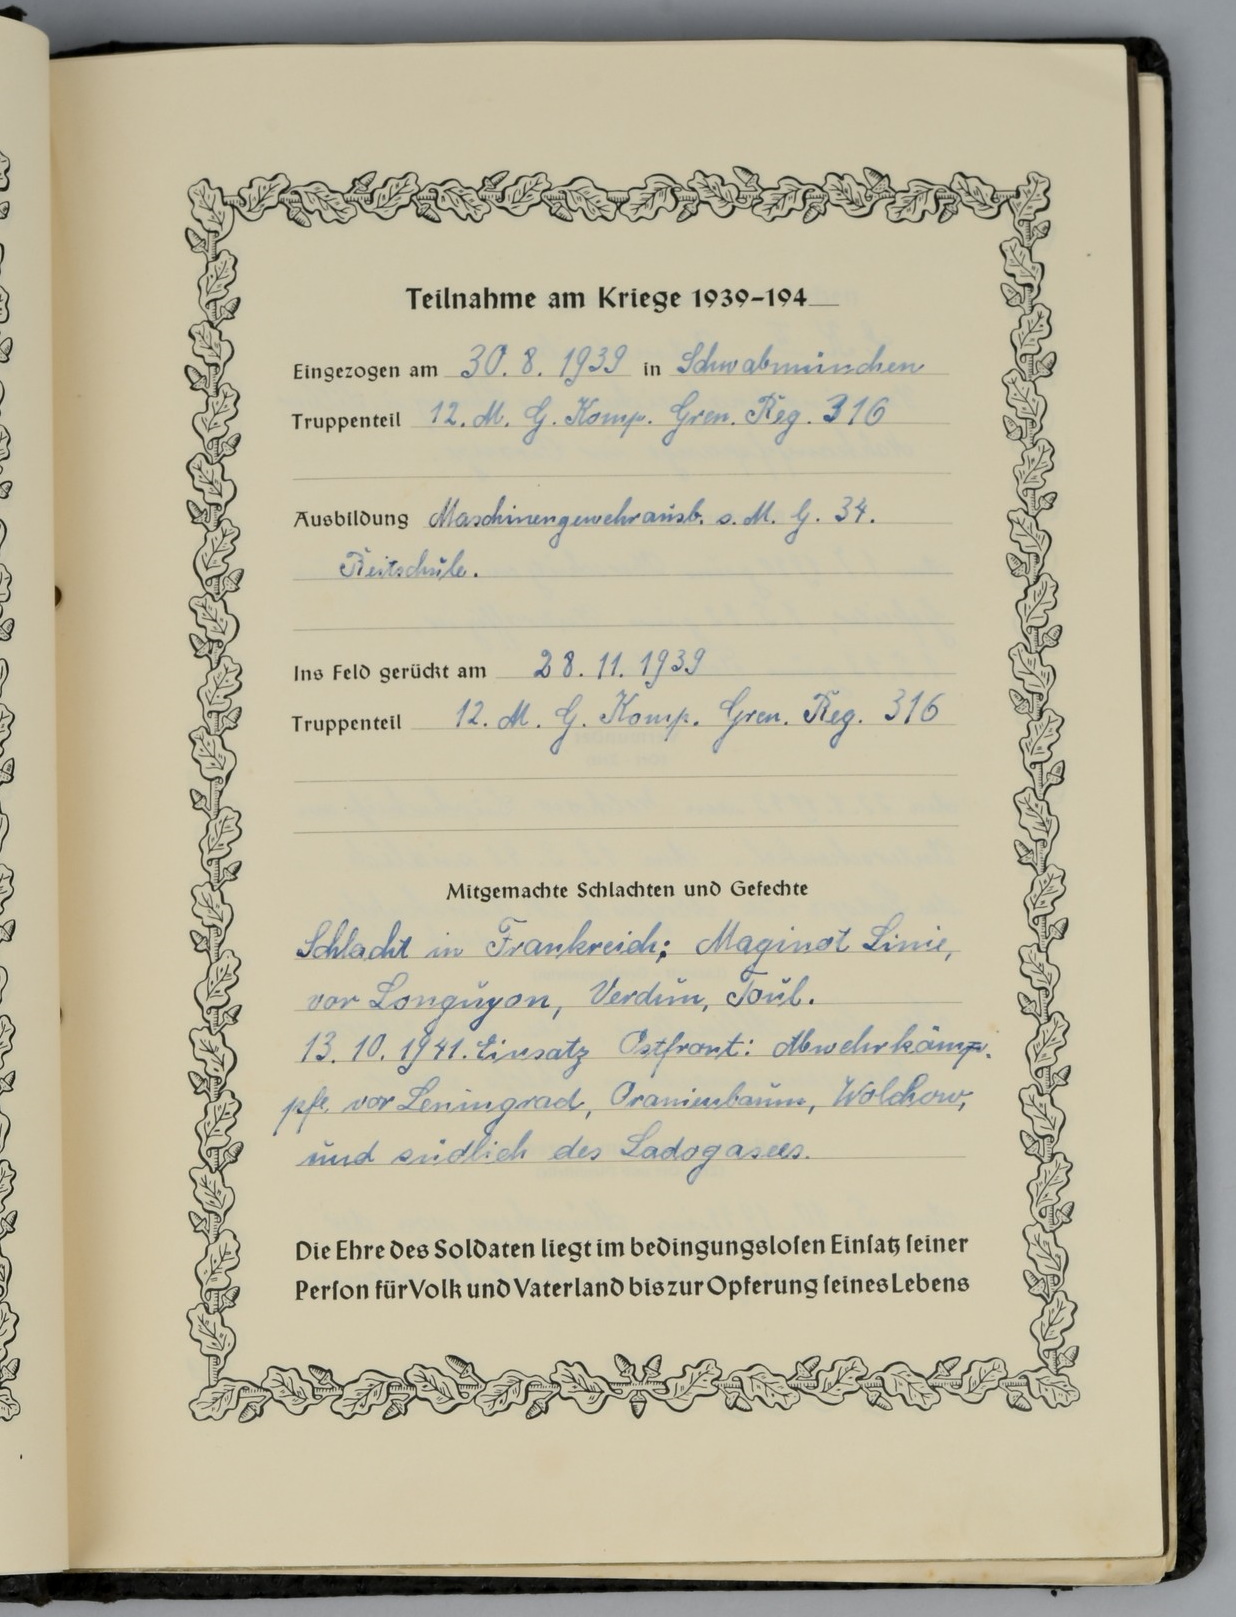 Teilnahme am Kriege 1939-194__
Eingezogen am 30. 8. 1939 in Schwabmünchen
Truppenteil 12. M. G. Komp. Gren. Reg. 316
Ausbildung Maschinengewehrausb. s. M. G. 34.
Reitschule.
Ins Feld gerückt am 28. 11. 1939
Truppenteil 12. M. G. Komp. Gren. Reg. 316
Mitgemachte Schlachten und Gefechte
Schlacht in Frankreich; Maginot Linie,
vor Longuyon, Verdun, Toul.
13. 10. 1941. Einsatz Ostfront: Abwehrkämp-
pfe vor Leningrad, Oranienbaum, Wolchow,
und südlich des Ladogasees.
Die Ehre des Soldaten liegt im bedingungsloſen Einſatz ſeiner
Perſon für Volk und Vaterland bis zur Opferung ſeines Lebens